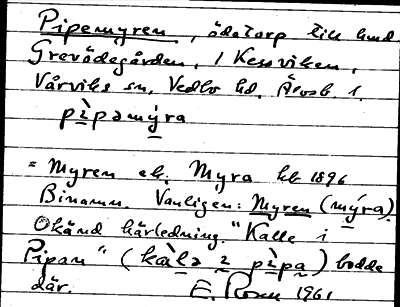 Pipemyren, ödetorp till hmd.
Grevödegården, i Kesviken,
Vårviks sn, Vedbo hd. Älvsb l.
pìpəmýra
= Myren el. Myra hfl 1896
Binamn. Vanligen: Myren (mýra).
Okänd härledning. "Kalle i
Pipan" (kàlə i pìpa) bodde
där. E. Rosen 1961